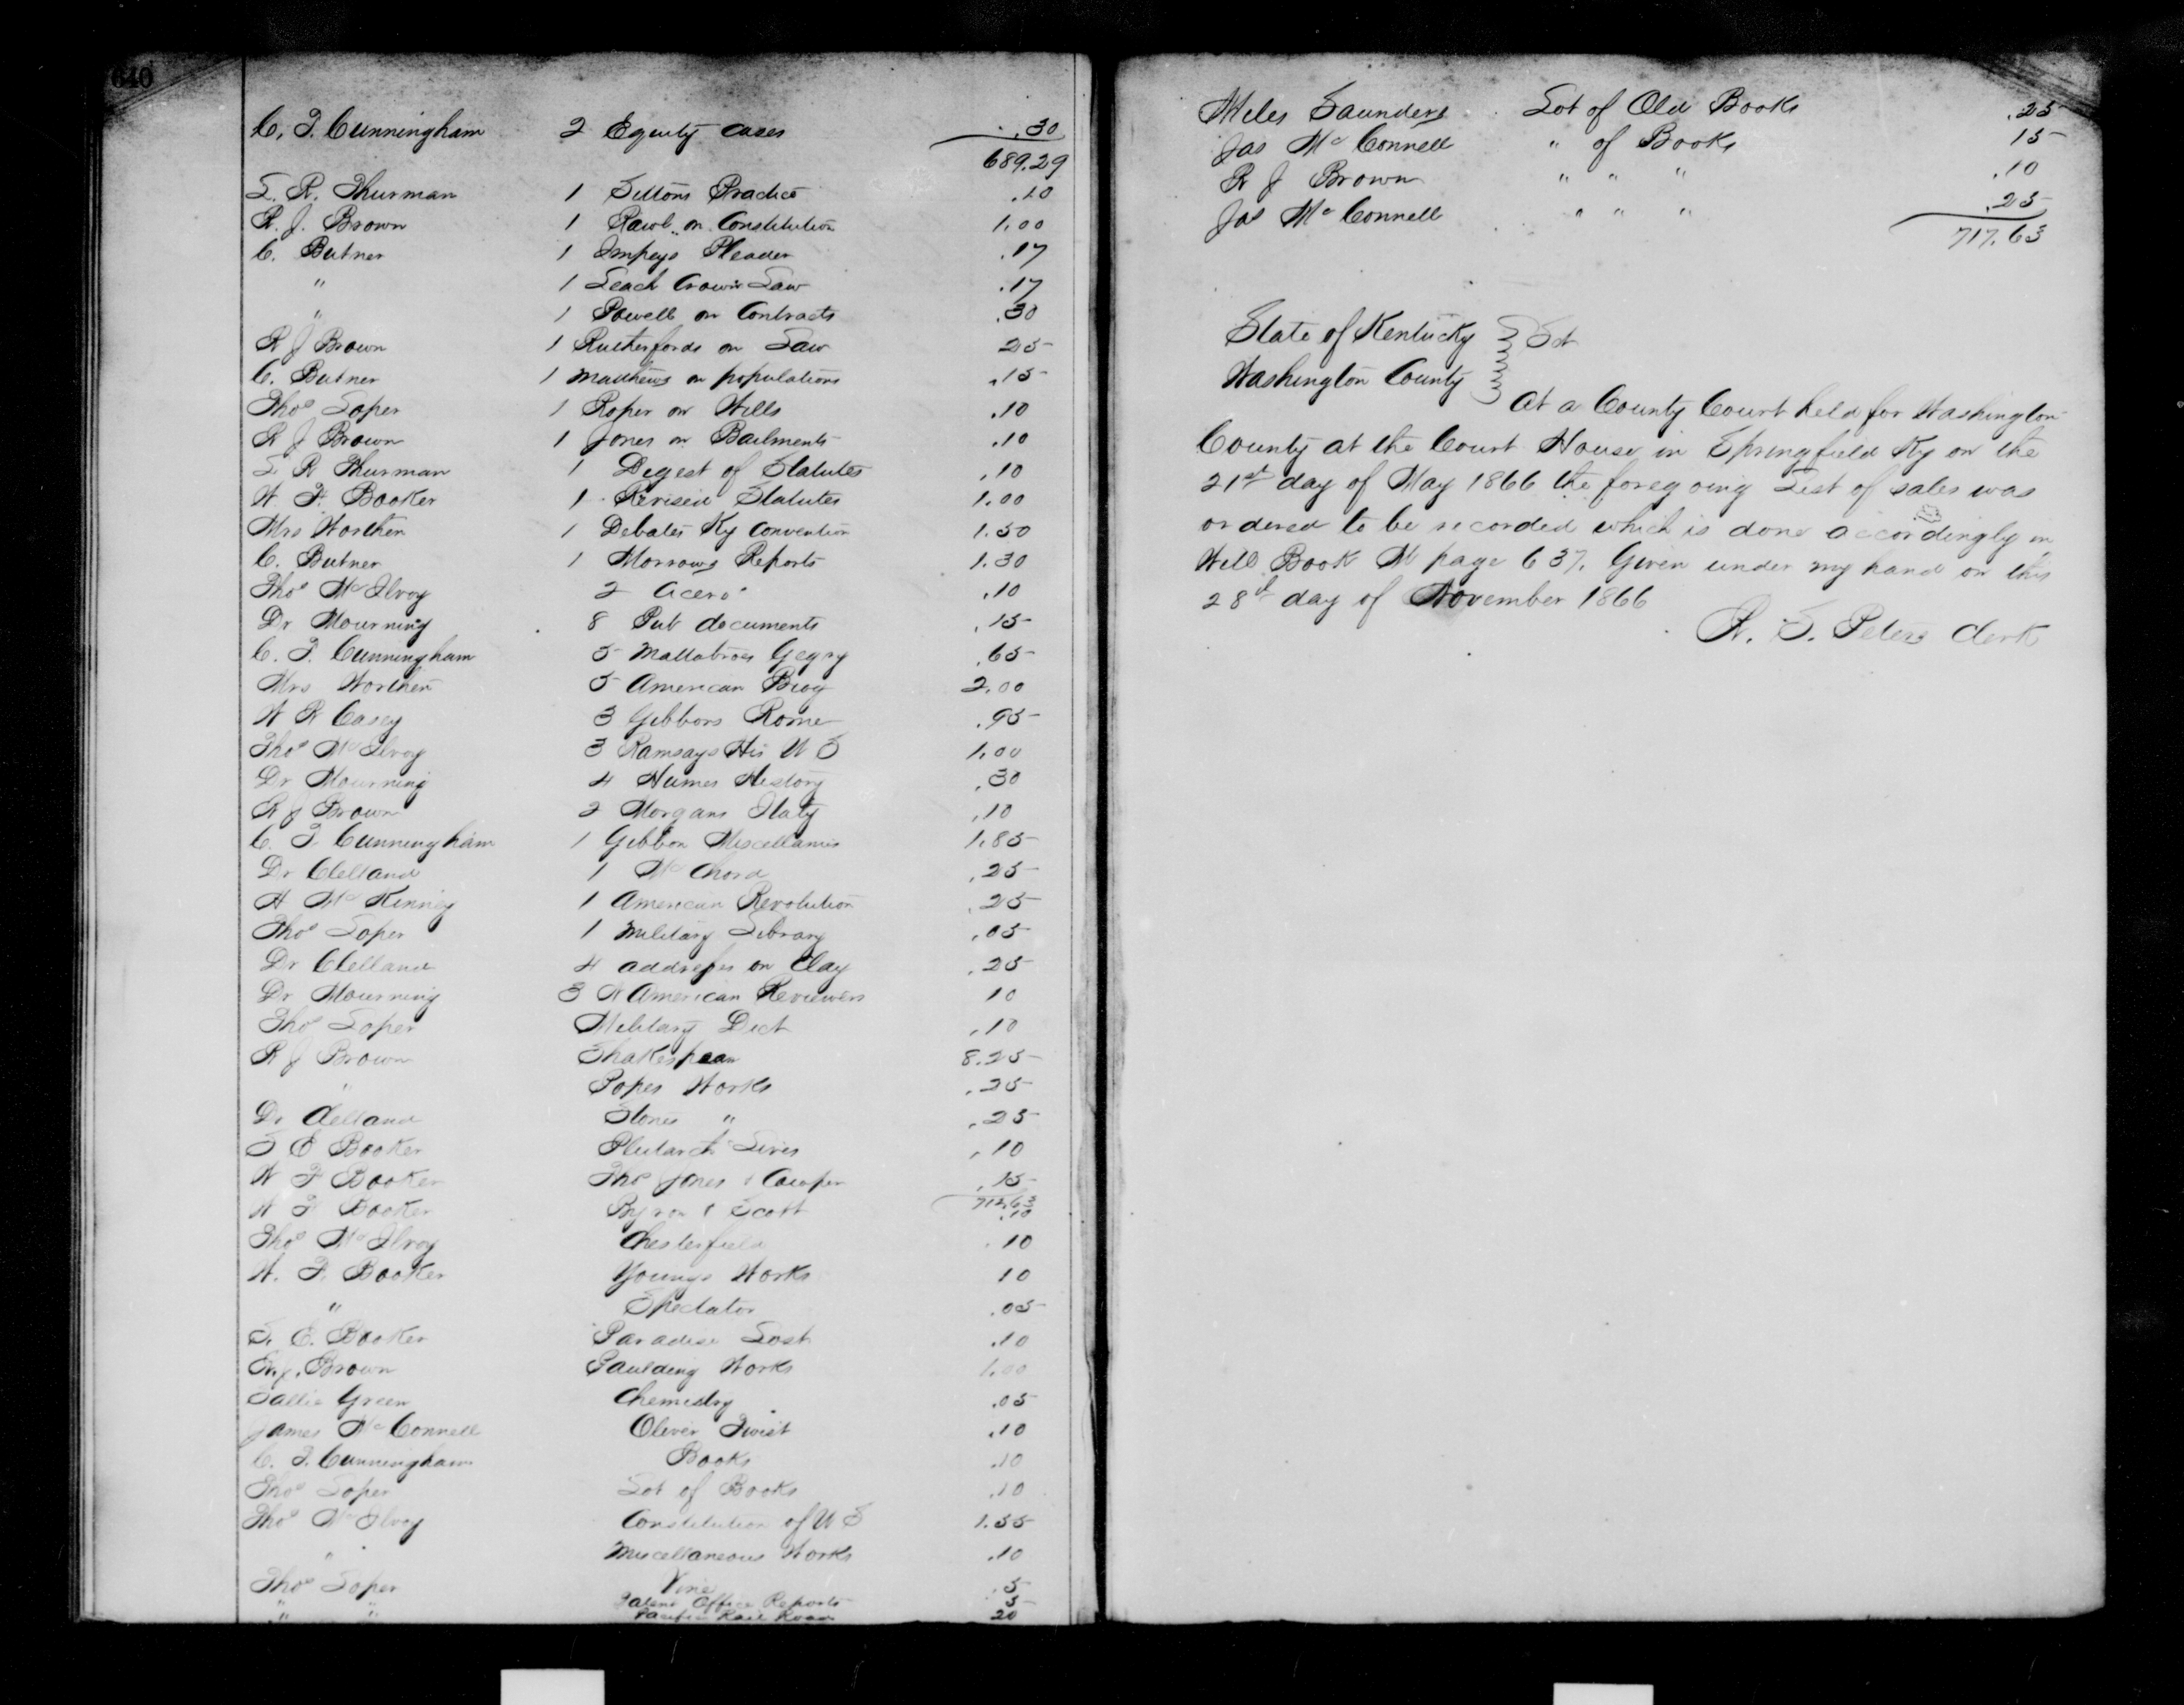 640
C. T. Cunningham 2 Equity cases .30
689.29
L. R. Thurman 1 Sellons Practice .10
R. J. Brown 1 Rawle on Constitution 1.00
C. Butner 1 Impeys Pleader .17
" 1 Leach Crown Law .17
" 1 Powell on Contracts .30
R J Brown 1 Rutherfords on Law 25
C. Butner 1 Mathews on populations .15
Thos Soper 1 Roper on Wills .10
R J Brown 1 Jones on Bailments .10
L R Thurman 1 Digest of Statutes .10
W. F. Booker 1 Revised Statutes 1.00
Mrs Worthen 1 Debates Ky Convention 1.50
C. Butner 1 Morrows Reports 1.30
Thos McIlvoy 2 Cicero .10
Dr Mourning 8 Pub documents .15
C. T. Cunningham 5 Geogry .65
Mrs Worthen 5 American Biog 2.00
W R Casey 3 Gibbons Rome .95
Thos McIlvoy 3 Ramsays His U S 1.00
Dr Mourning 4 Humes History .30
R J Brown 2 Morgans Italy .10
C. T. Cunningham 1 Gibbon Miscellanies 1.85
Dr Clelland 1 McChord .25
H McKinney 1 American Revolution .25
Thos Soper 1 Military Library .05
Dr Clelland 4 addresses on Clay .25
Dr Mourning 3 N American Reviewers 10
Thos Soper Military Dict .10
R J Brown Shakespear 8.25
" Popes Works .25
Dr Clelland Stones " .25
S E Booker Plutarch Lives .10
W F Booker Thos Jones & Cowper .15
712.63
W F Booker Byron & Scott .10
Thos McIlvoy Chesterfield .10
W. F. Booker Youngs Works 10
" Spectator .05
S. E. Booker Paradise Lost .10
R. J. Brown Paulding Works 1.00
Sallie Green Chemistry .05
James McConnell Oliver Twist .10
C. T. Cunningham Books .10
Thos Soper Lot of Books .10
Thos McIlvoy Constitution of U S 1.55
" Miscellaneous Works .10
Thos Soper Vine .5
" " Patent Office Reports 5
" " Pacific Rail Road 20
Miles Saunders Lot of Old Books .25
Jas McConnell " of Books 15
R J Brown " " " .10
Jas McConnell " " " .25
717.63
State of Kentucky } Sct
Washington County
At a County Court held for Washington
County at the Court House in Springfield Ky on the
21st day of May 1866 the foregoing List of sales was
ordered to be recorded which is done accordingly in
Will Book M page 637. Given under my hand on this
28th day of November 1866
W. S. Peters Clerk